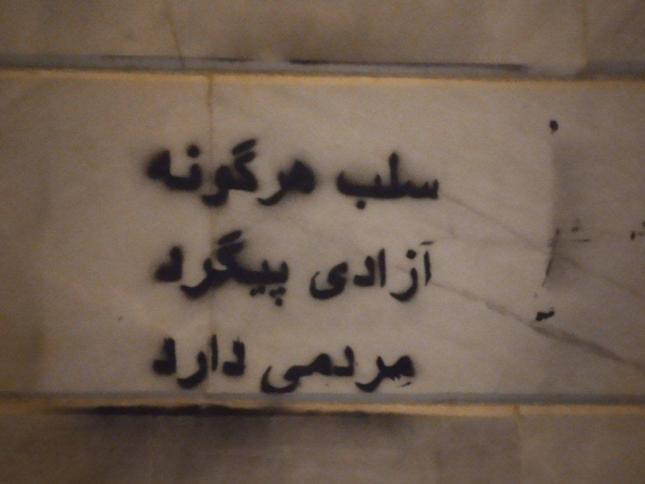 سلب هرگونه
آزادی پیگرد
مردمی دارد